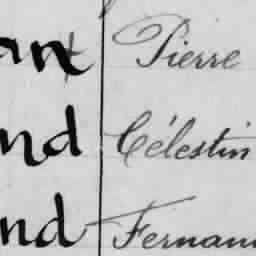 ant Pierre
nd Célestin
nd Fernan